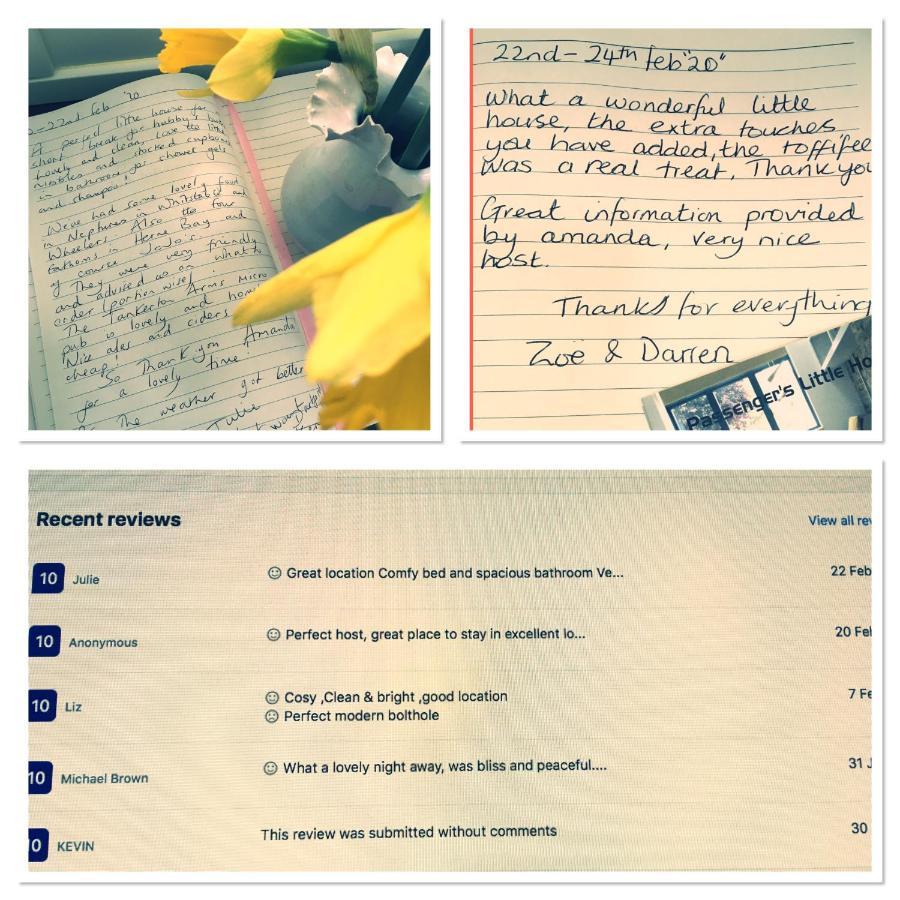 -22nd feb '20
A perfect little house for
short break for hubby &
Lovely and clean, love the little
nibbles and stocked cupboard
in bathroom for shower gels
and shampoo!
We've had some lovely food
in Neptunes in Whitstable and
Wheelers. Also the four
fathoms in Herne Bay and
of course JoJo's.
They were very friendly
and advised us on what to
order (portion wise!
The Tankerton Arms micro
pub is lovely and
Nice ales and ciders
cheap!
So Thank you Amanda
for a lovely time!
The weather got better
Julie
22nd - 24th feb "20"
What a wonderful little
house, the extra touches
you have added, the toffifee
was a real treat, Thankyou
Great information provided
by amanda, very nice
host.
Thanks for everything
Zoë & Darren
Passenger's Little Ho
Recent reviews
View all rev
10 Julie Great location Comfy bed and spacious bathroom Ve... 22 Feb
10 Anonymous Perfect host, great place to stay in excellent lo... 20 Feb
10 Liz Cosy ,Clean & bright ,good location 7 Fe
Perfect modern bolthole
10 Michael Brown What a lovely night away, was bliss and peaceful.... 31 J
0 KEVIN This review was submitted without comments 30